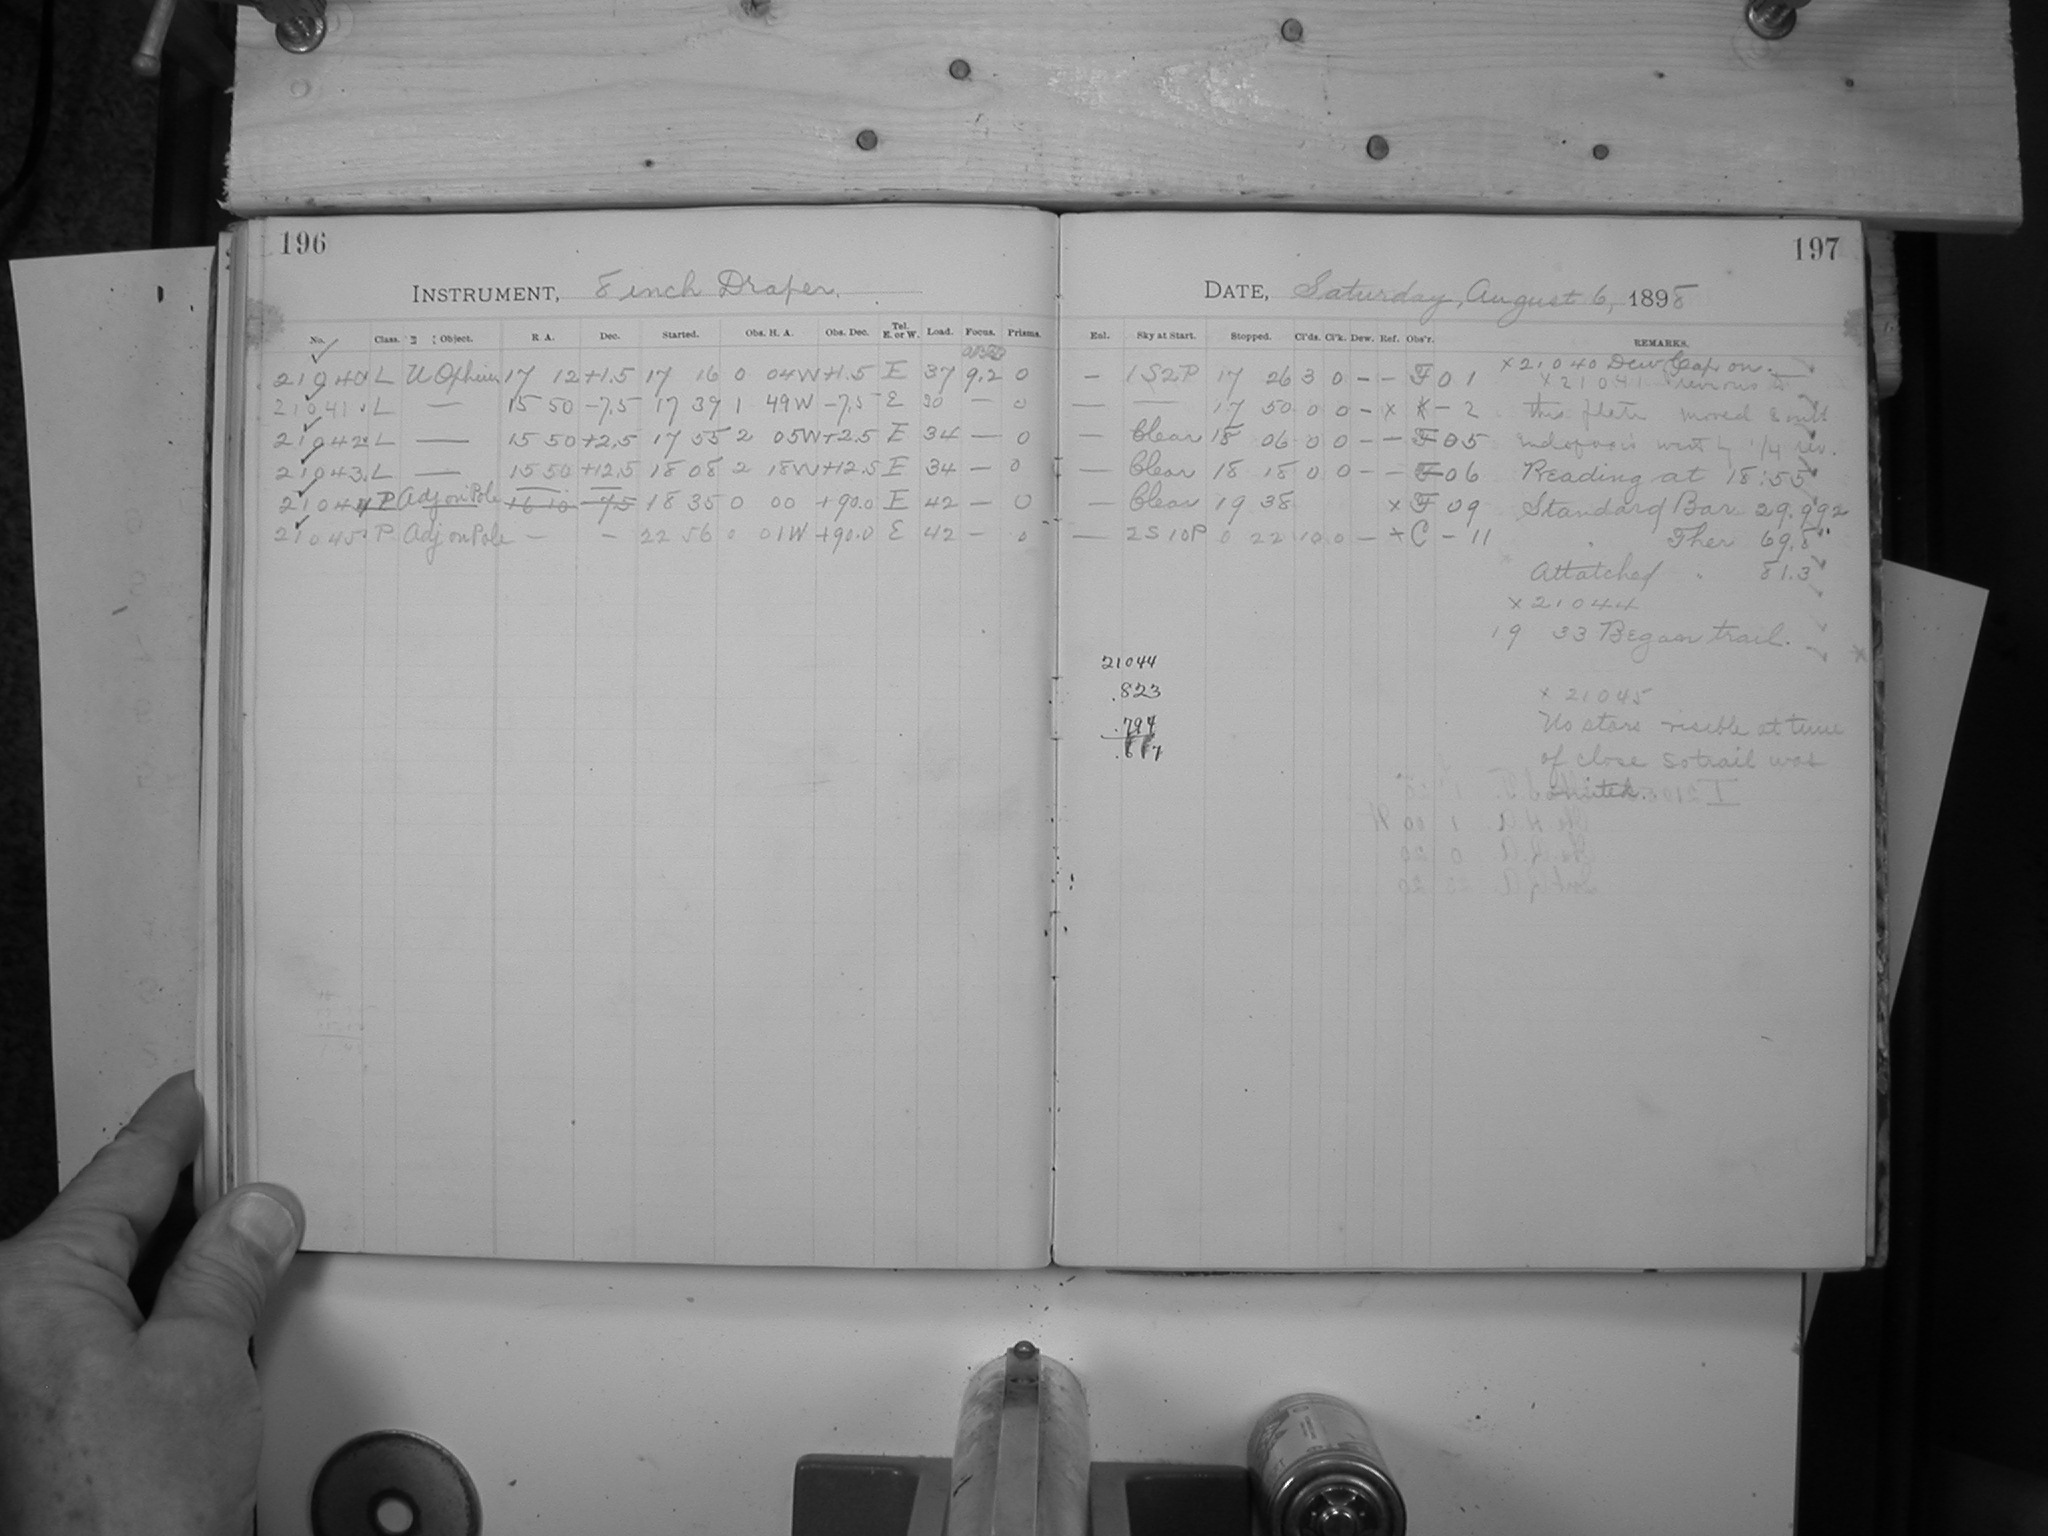 196
INSTRUMENT, 8 inch Draper.
No. Class. Object. R A. Dec. Started. Obs. H. A. Obs. Dec. Tel. E. or W. Load. Focus. Prisms.
21040 L U Ophiuci 17 12 +1.5 17 16 0 04W +1.5 E 37 9.2 0
21041 L — 15 50 -7.5 17 39 1 49W -7.5 E 30 — 0
21042 L — 15 50 +2.5 17 55 2 05W +2.5 E 34 — 0
21043 L — 15 50 +12.5 18 08 2 18W +12.5 E 34 — 0
21044 P Adj on Pole 16 10 -7.5 18 35 0 00 +90.0 E 42 — 0
21045 P Adj on Pole — — 22 56 0 01W +90.0 E 42 — 0
197
DATE, Saturday, August 6, 1898
Enl. Sky at Start. Stopped. Cl'ds. Cl'k. Dew. Ref. Obs'r. REMARKS.
— 1S2P 17 26 3 0 - - F 0 1 x 21040 Dew Cap on.
x 21041 Previous to
— — 17 50 0 0 - x K - 2 this plate moved south
— Clear 18 06 0 0 - - F 0 5 end of axis west by 1/4 rev.
— Clear 18 18 0 0 - - F 0 6 Reading at 18:55
— Clear 19 38 x F 0 9 Standard Bar 29.992
— 2S10P 0 22 10 0 - x C - 11 " Ther 69.8
Attatched " 81.3
x 21044
19 33 Began trail.
21044
.823
.794
.617
x 21045
No stars visible at time
of close so trail was
omitted.